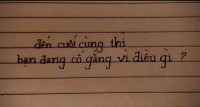 đến cuối cùng thì
bạn đang cố gắng vì điều gì ?